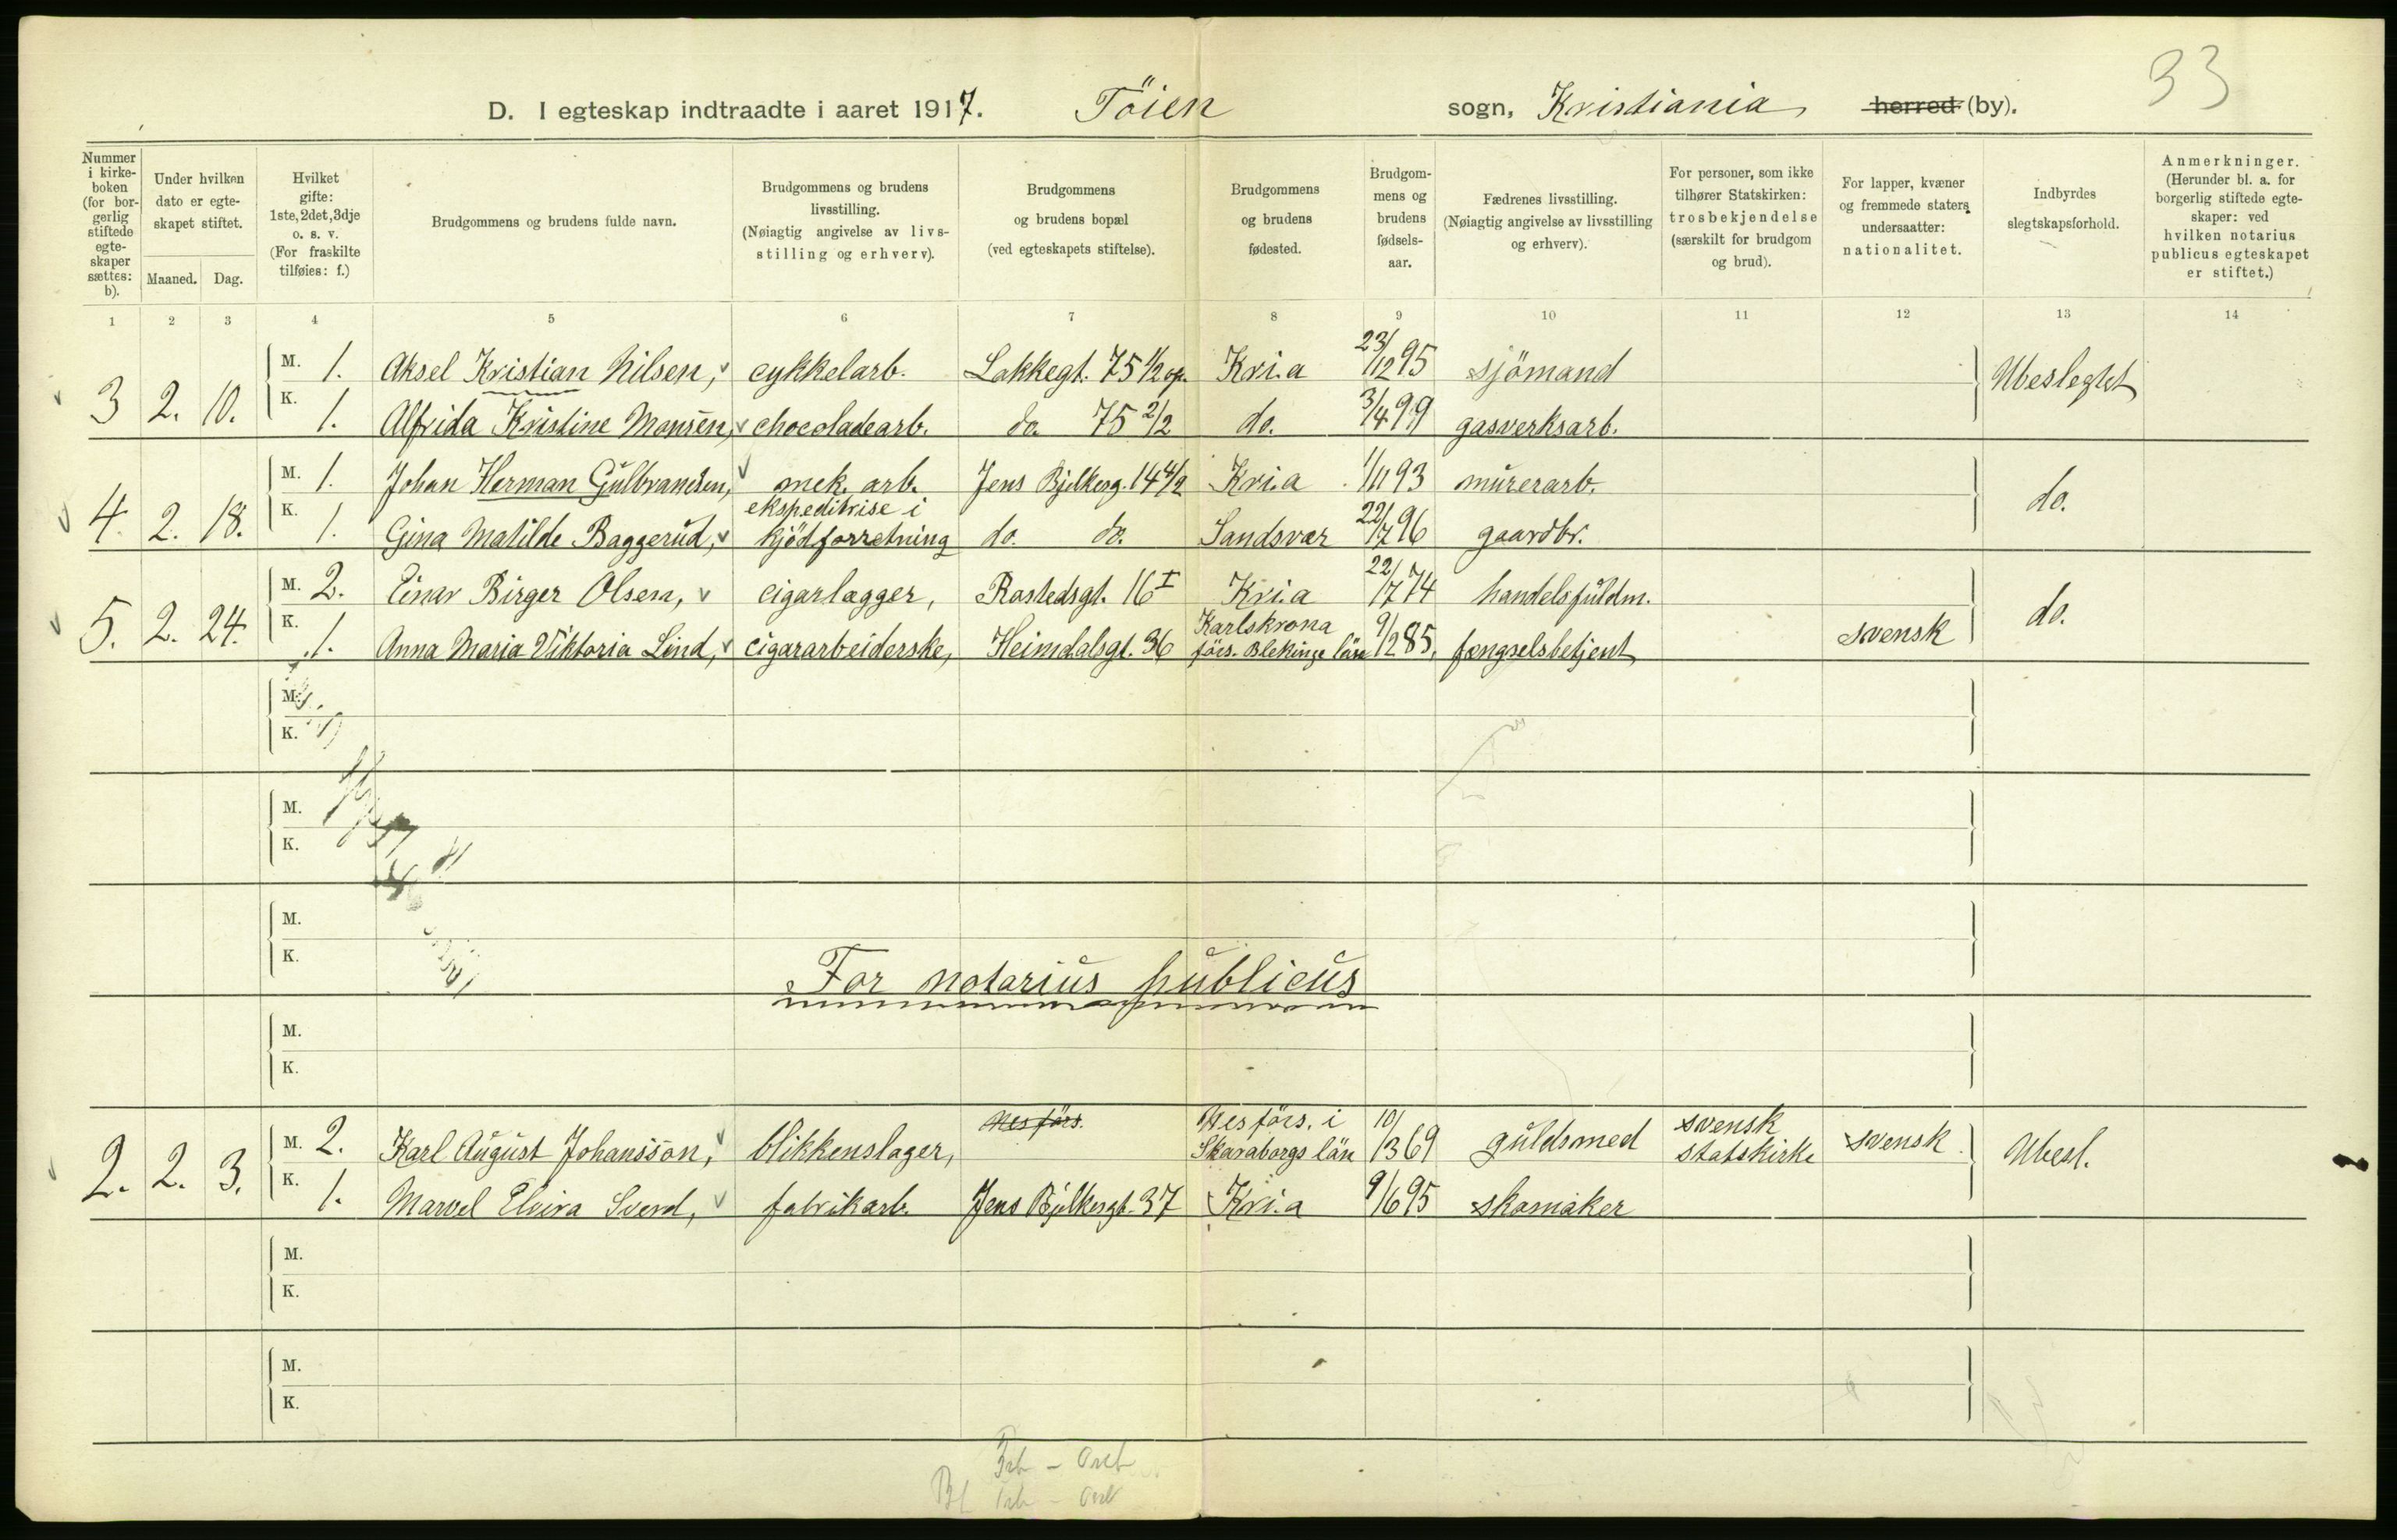 33
D. I egteskap indtraadte i aaret 1917. Töien sogn, Kristiania herred (by).
Nummer i kirkeboken (for borgerlig stiftede egteskaper sættes: b).
Under hvilken dato er egteskapet stiftet.
Maaned. Dag.
Hvilket gifte: 1ste, 2det, 3dje o. s. v. (For fraskilte tilføies: f.)
Brudgommens og brudens fulde navn.
Brudgommens og brudens livsstilling. (Nøiagtig angivelse av livsstilling og erhverv).
Brudgommens og brudens bopæl (ved egteskapets stiftelse).
Brudgommens og brudens fødested.
Brudgommens og brudens fødselsaar.
Fædrenes livsstilling. (Nøiagtig angivelse av livsstilling og erhverv).
For personer, som ikke tilhører Statskirken: trosbekjendelse (særskilt for brudgom og brud).
For lapper, kvæner og fremmede staters undersaatter: nationalitet.
Indbyrdes slegtskapsforhold.
Anmerkninger. (Herunder bl. a. for borgerlig stiftede egteskaper: ved hvilken notarius publicus egteskapet er stiftet.)
1 2 3 4 5 6 7 8 9 10 11 12 13 14
3 2. 10. M. 1. Aksel Kristian Nilsen, cykkelarb. Lakkegt. 75 1/2 op. Kri.a 23/12 95 sjömand Ubeslegtet
K. 1. Alfrida Kristine Monsen, chocoladearb. do. 75 2/2 do. 3/4 99 gasverksarb.
4. 2. 18. M. 1. Johan Herman Gulbrandsen, mek. arb. Jens Bjelkesg. 14 4/2 Kri.a 1/11 93 murerarb. do.
K. 1. Gina Matilde Baggerud, ekspeditrise i kjödforretning do. do. Sandsvær 22/7 96 gaardbr.
5. 2. 24. M. 2. Einar Birger Olsen, cigarlægger, Rostedsgt. 16 I Kri.a 22/7 74 handelsfuldm. do.
K. 1. Anna Maria Viktoria Lind, cigararbeiderske, Heimdalsgt. 36 Karlskrona förs. Blekinge län 9/2 85, fængselsbetjent svensk
M.
K.
M.
K.
M.
K.
For notarius publicus
M.
K.
2. 2. 3. M. 2. Karl August Johansson, blikkenslager, Nes förs. Nes förs. i Skaraborgs län 10/3 69 guldsmed svensk statskirke svensk Ubesl.
K. 1. Marvel Elvira Sverd, fabrikarb. Jens Bjelkesgt. 37 Kri.a 9/6 95 skomaker
M.
K.
M.
K.